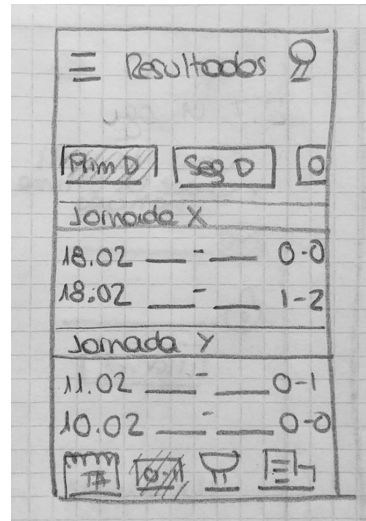 Resultados
Prim D Seg D O
Jornada X
18.02 __-__ 0-0
18:02 __-__ 1-2
Jornada Y
11.02 __-__ 0-1
10.02 __-__ 0-0
0-1